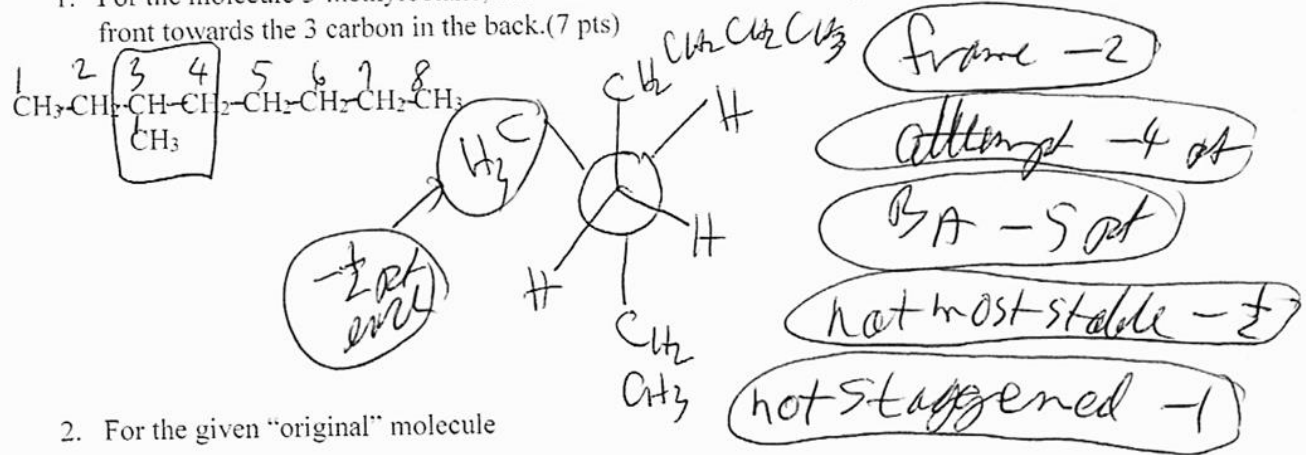 front towards the 3 carbon in the back.(7 pts)
1 2 3 4 5 6 7 8
CH3-CH2-CH-CH2-CH2-CH2-CH2-CH3
CH3
CH2 CH2CH2CH3
H
H3C
H
H
CH2
CH3
-½ pt
each
frame -2
attempt -4 pt
BA -5 pt
not most stable -½
not staggened -1
2. For the given “original” molecule